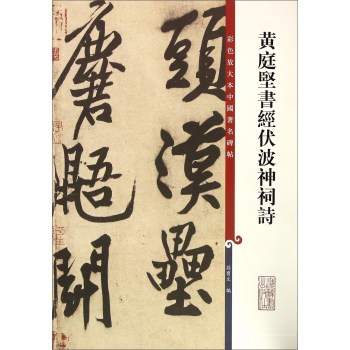 黃庭堅書經伏波神祠詩
彩色放大本中國著名碑帖
孫寶文 編
頭漢壘
麏鼯鬭